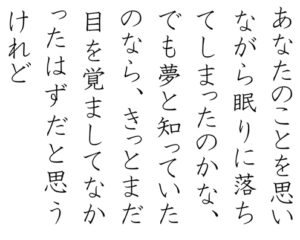 あなたのことを思い
ながら眠りに落ち
てしまったのかな、
でも夢と知っていた
のなら、きっとまだ
目を覚ましてなか
ったはずだと思う
けれど